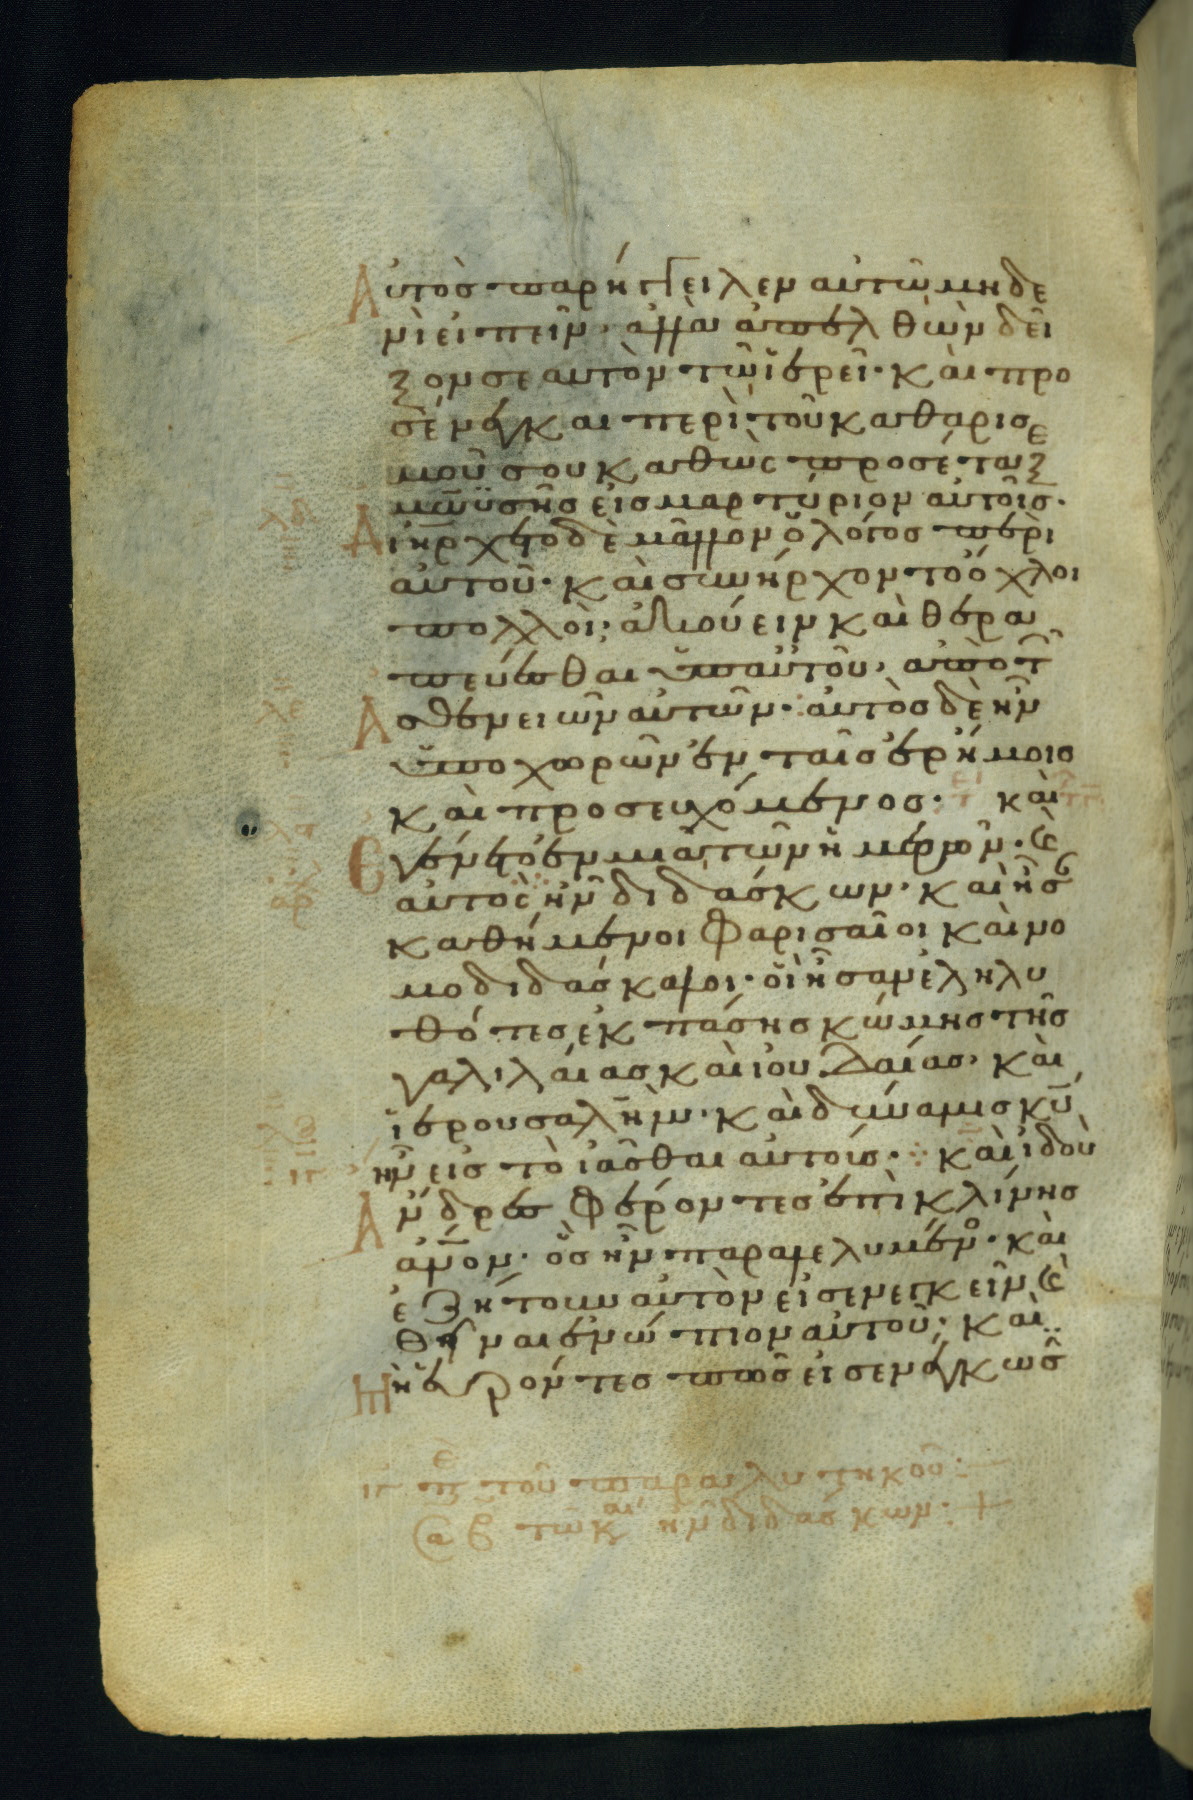 Αὐτὸσ παρήγγειλεν αὐτῶ μηδε
νὶ εἰπεῖν· ἀλλὰ ἀπελθὼν δεῖ
ξον σεαυτὸν τῶ ἱερεῖ· καὶ προ
σένεγκαι περὶ τοῦ καθαρισ
μοῦ σου καθὼς προσέταξε
μωϋσῆσ εἰσ μαρτύριον αὐτοῖσ·
Διήρχετο δὲ μᾶλλον ὁ λόγοσ περὶ
αὐτοῦ· καὶ συνήρχοντο ὄχλοι
πολλοὶ· ἀκούειν καὶ θερα
πεύεσθαι ὑπ αὐτοῦ, ἀπὸ τῶν
Ασθενειῶν αὐτῶν· αὐτὸσ δὲ ἦν
ὑποχωρῶν ἐν ταῖσ ἐρήμοισ
καὶ προσευχόμενοσ· καὶ
Εγένετο ἐν μιᾶ τῶν ἡμερῶν· καὶ
αὐτὸς ἦν διδάσκων· καὶ ἦσ
καθήμενοι Φαρισαῖοι καὶ νο
μοδιδάσκαλοι· οἳ ἦσαν ἐληλυ
θότεσ ἐκ πάσησ κώμησ τῆσ
γαλιλαίασ καὶ ἰουδαίασ, καὶ
ἱερουσαλὴμ· καὶ δύναμισ κυ
ἦν εἰσ τὸ ἰᾶσθαι αὐτούσ· καὶ ἰδοὺ
Ἄνδρεσ Φέροντεσ ἐπὶ κλίνησ
ἄνον· ὃσ ἦν παραλελυμένος· καὶ
ἐζήτουν αὐτὸν εἰσενεγκεῖν καὶ
θῆναι ἐνώπιον αὐτοῦ· καὶ
Μὴ εὑρόντεσ πῶσ εἰσενέγκωσ
τοῦ παραλυτικοῦ:
ἦν διδάσκων:+